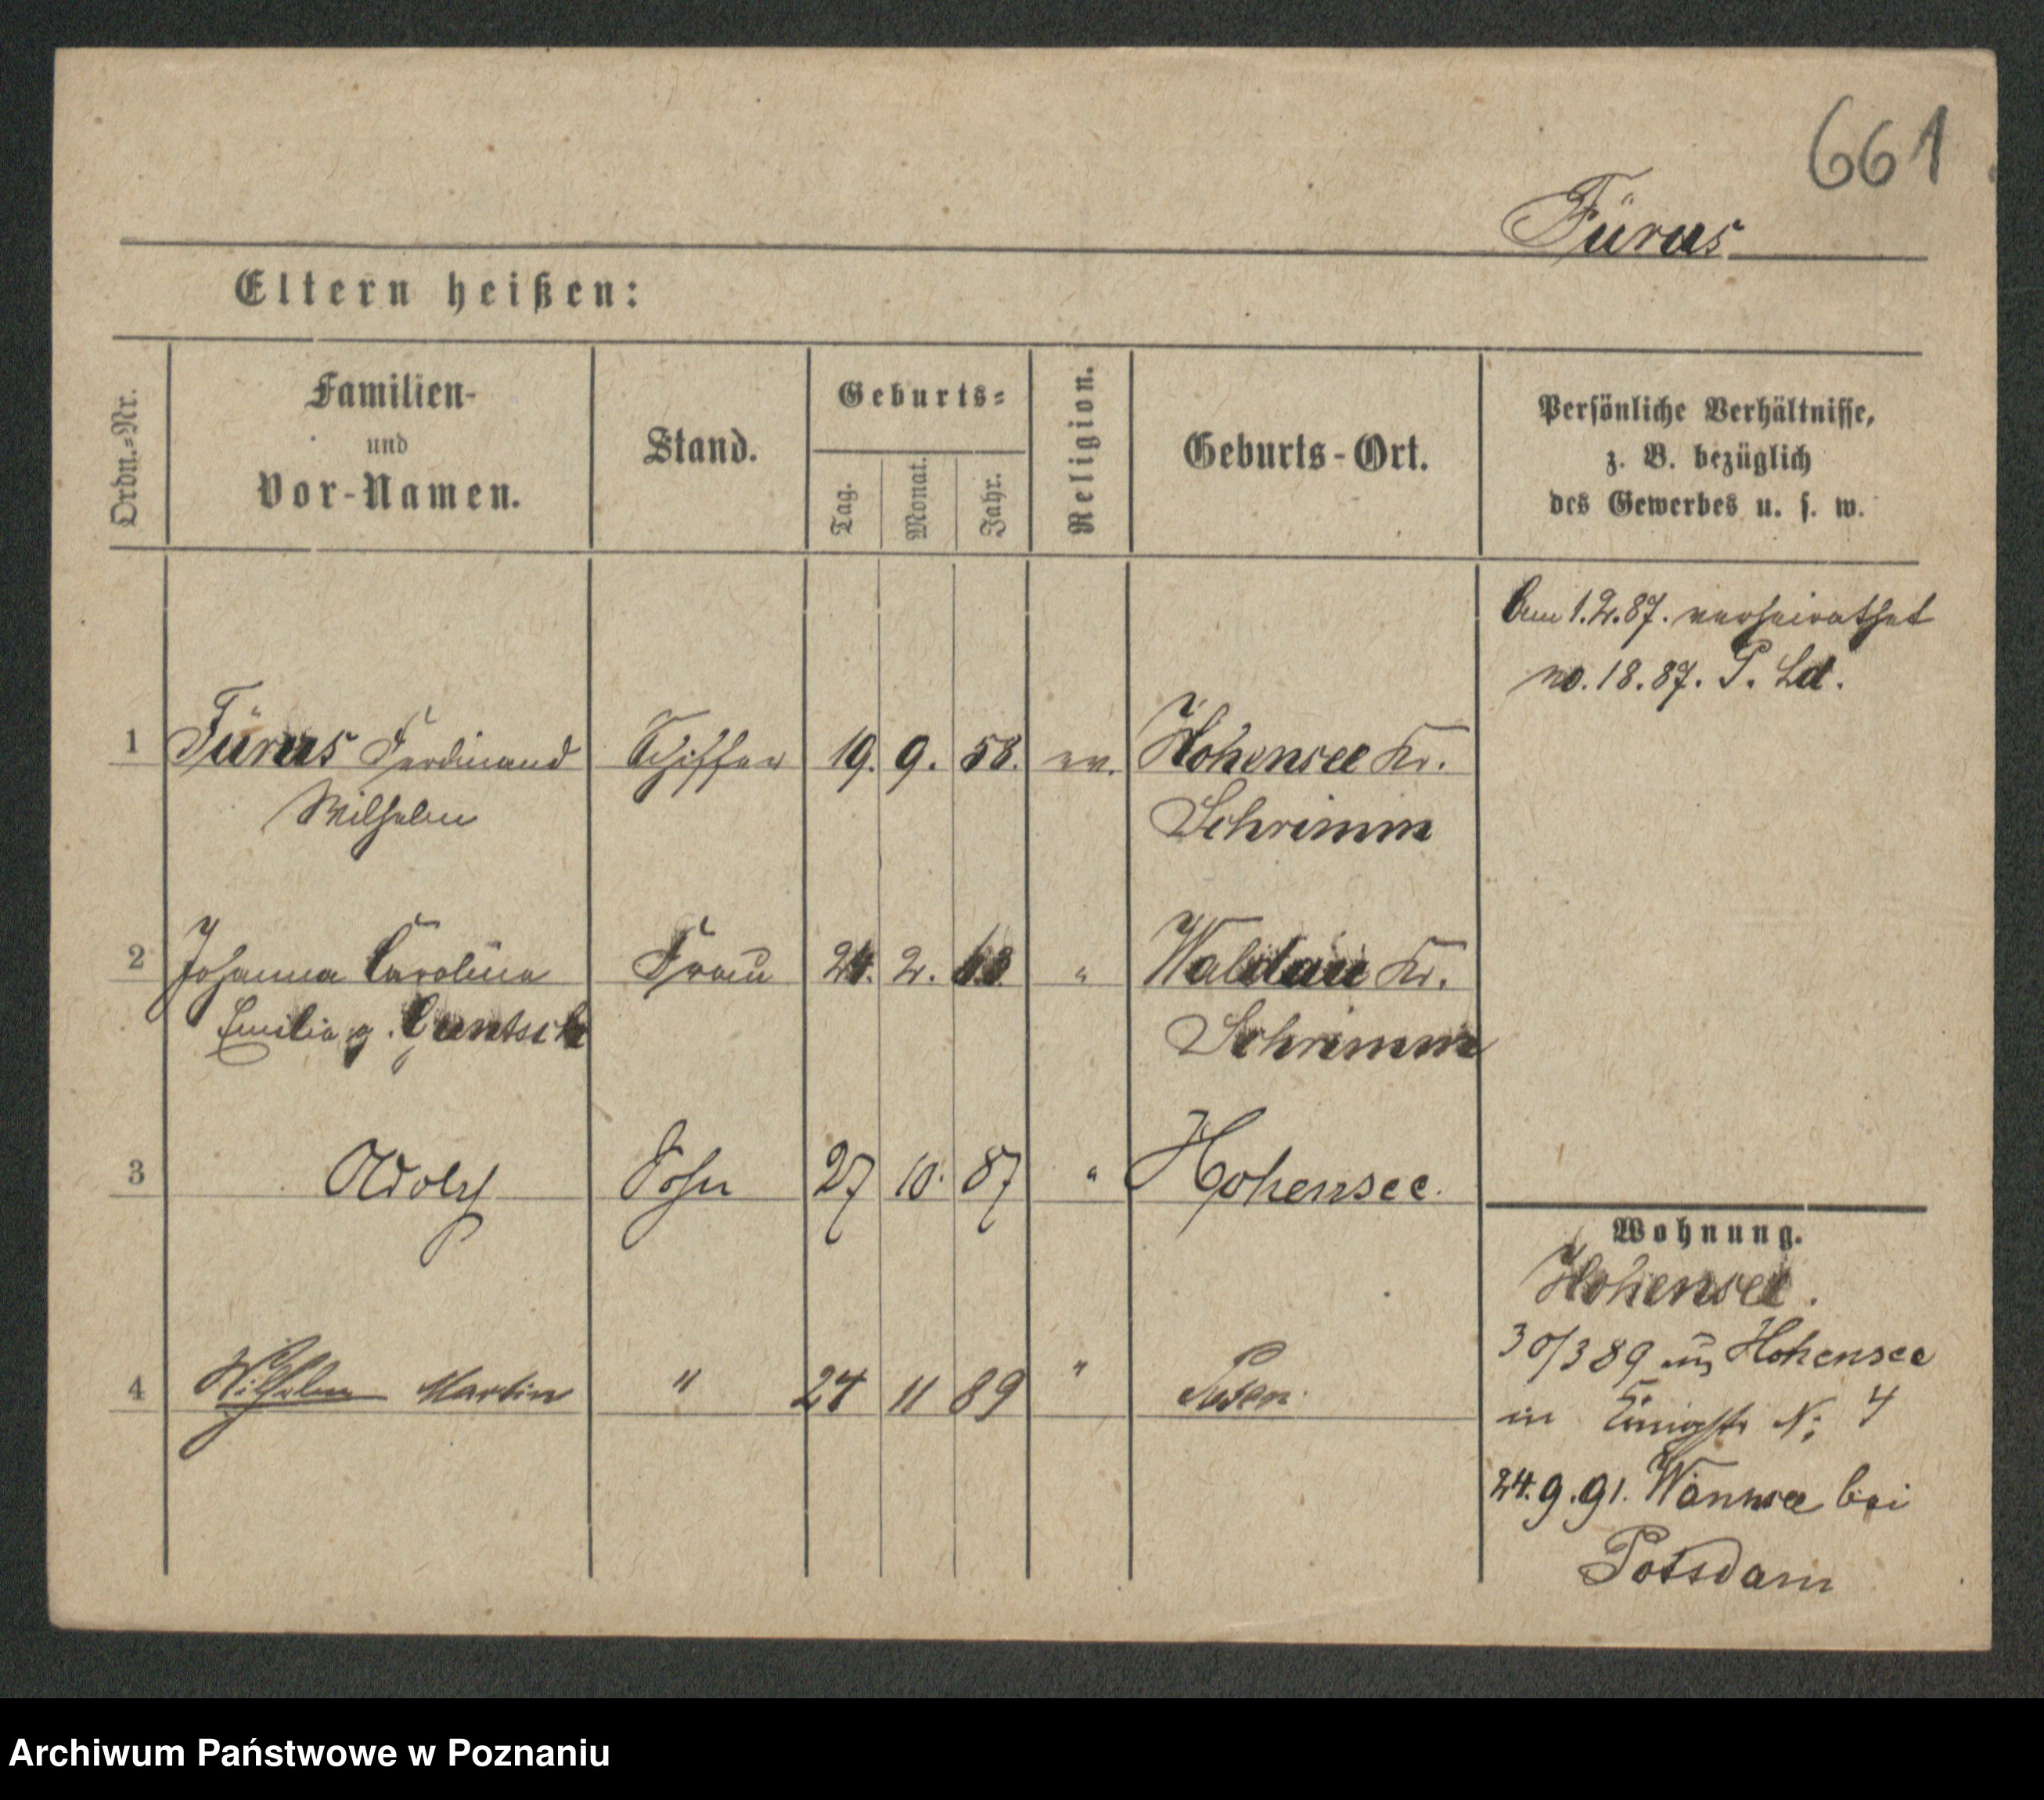 661
Fürus
Eltern heißen:
Ordn.-Nr.
Familien-
und
Vor-Namen.
Stand.
Geburts-
Tag.
Monat.
Jahr.
Religion.
Geburts-Ort.
Persönliche Verhältnisse,
z. B. bezüglich
des Gewerbes u. s. w.
Am 1.2.87. verheirathet
no. 18.87. P. Ld.
1 Fürus Ferdinand Schiffer 19. 9. 58. ev. Hohensee Kr.
Wilhelm Schrimm
2 Johanna Carolina Frau 24. 2. " Waldau Kr.
Emilie g. Schrimm
3 Adolf Sohn 27 10. 87 " Hohensee.
4 Wilhelm Martin " 24 11 89 " Posen.
Wohnung.
Hohensee.
30/3 89 aus Hohensee
in N: 4
24.9.91. Wannsee bei
Potsdam
Archiwum Państwowe w Poznaniu